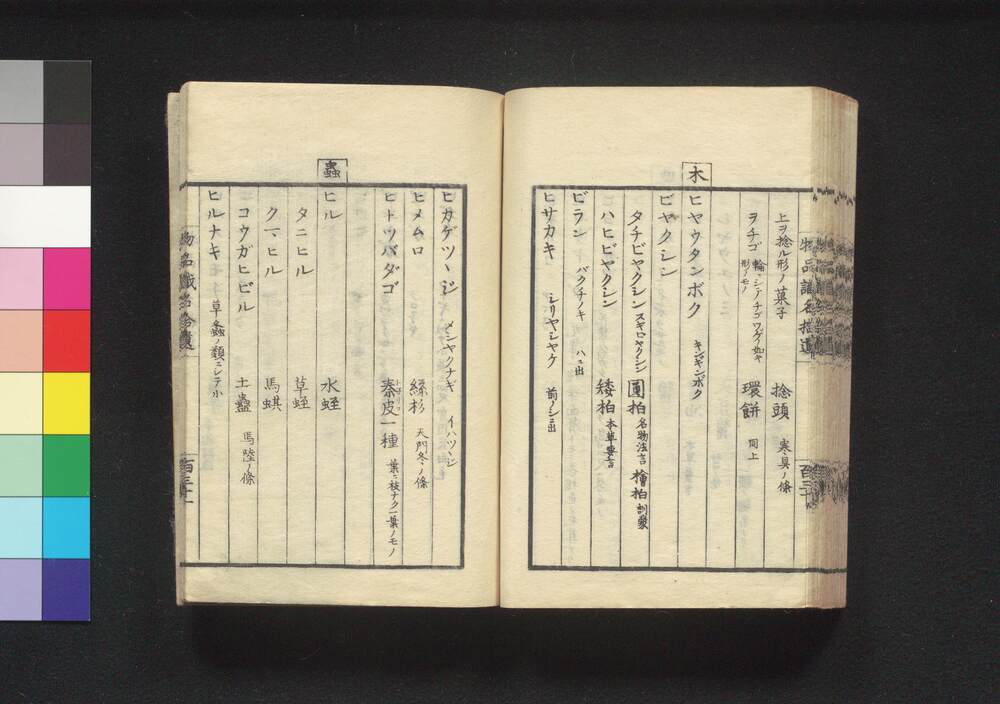 物品識名拾遺
上ヲ捻ル形ノ菓子 捻頭 寒具ノ條
ヲチゴ 輪ニシテチゴワゲノ如キ形ノモノ 環餅 同上
木
ヒヤウタンボク キンギンボク
ビヤクシン
タチビヤクシン スギビヤクシン 圓柏 名物法言 檜柏 訓蒙
ハヒビヤクシン 矮柏 本草彙言
ビラン バクチノキ ハニ出
ヒサカキ シリヤシヤケ 前ノシニ出
ヒカゲツヽジ メシヤクナギ イハツヽジ
ヒメムロ 絲杉 天門冬ノ條
ヒトツバダゴ 秦皮一種 葉ニ枝ナク一葉ノモノ
蟲
ヒル 水蛭
タニヒル 草蛭
クマヒル 馬蜞
コウガヒビル 土蠱 馬陸ノ條
ヒルナキ 草螽ノ類ニシテ小
物品識名拾遺
百三十一